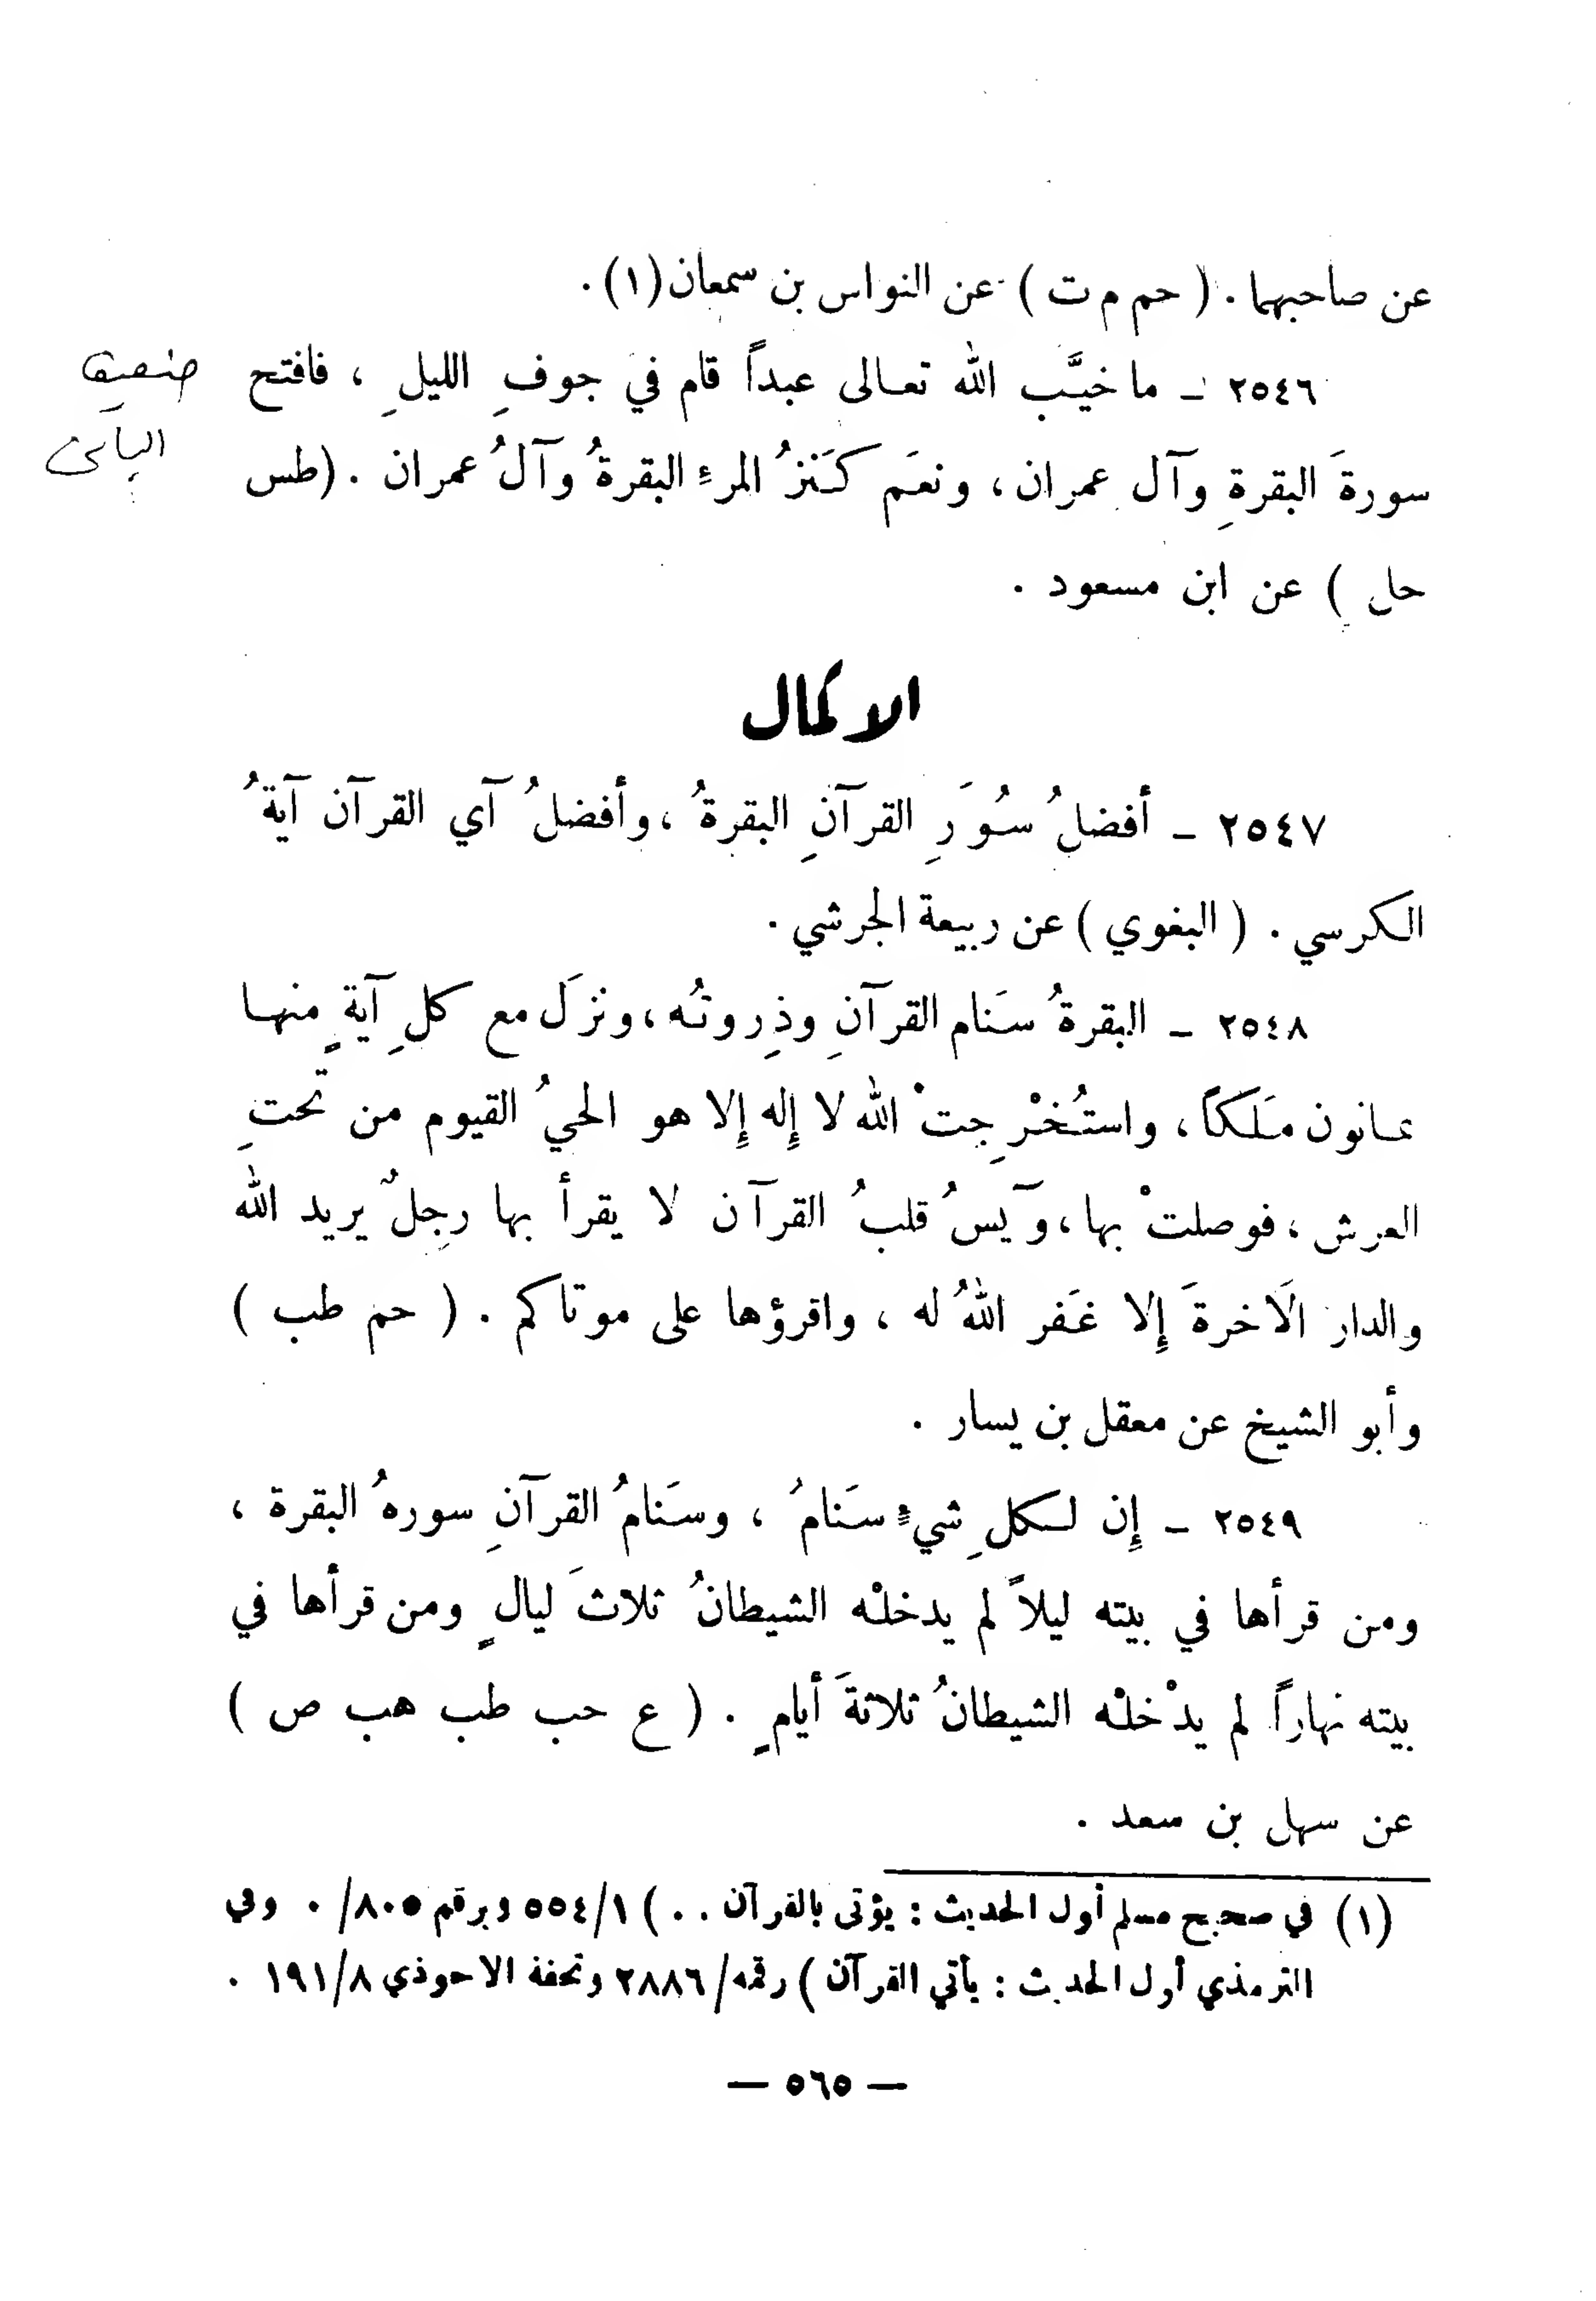 عن صاحبهما . ( حم م ت ) عن النواس بن سمعان (١) .
٢٥٤٦ ـ ما خيَّب الله تعالى عبداً قام في جوفِ الليلِ ، فافتح
ضعيف
سورةَ البقرةِ وآل عمران ، ونعَم كَنزُ المرءِ البقرةُ وآلُ عمران . (طس
حل ) عن ابن مسعود .
الاكمال
٢٥٤٧ ـ أفضلُ سُوَرِ القرآنِ البقرةُ ، وأفضلُ آي القرآن آيةُ
الكرسي . ( البغوي ) عن ربيعة الجرشي .
٢٥٤٨ ـ البقرةُ سَنام القرآنِ وذِروتُه ، ونزَل مع كلِ آيةٍ منها
ثمانون مَلَكاً ، واستُخْرِجتْ الله لا إِله إِلا هو الحيُ القيوم من تحتِ
العرش ، فوصلتْ بها ، وَيسُ قلبُ القرآن لا يقرأ بها رجلٌ يريد الله
والدار الآخرةَ إِلا غَفر اللهُ له ، واقرؤها على موتاكم . ( حم طب )
وأبو الشيخ عن معقل بن يسار .
٢٥٤٩ ـ إِن لكلِ شيءٍ سَنامُ ، وسَنامُ القرآنِ سورهُ البقرة ،
ومن قرأها في بيته ليلاً لم يدخلْه الشيطانُ ثلاثَ ليالٍ ومن قرأها في
بيته نهاراً لم يدْخلْه الشيطانُ ثلاثةَ أيامٍ . ( ع حب طب هب ص )
عن سهل بن سعد .
(١) في صحيح مسلم أول الحديث : يؤتى بالقرآن . . ) ٥٥٤/١ وبرقم ٨٠٥/ . وفي
الترمذي أول الحديث : يأتي القرآن ) رقمه/ ٢٨٨٦ وتحفة الاحوذي ١٩١/٨ .
— ٥٦٥ —